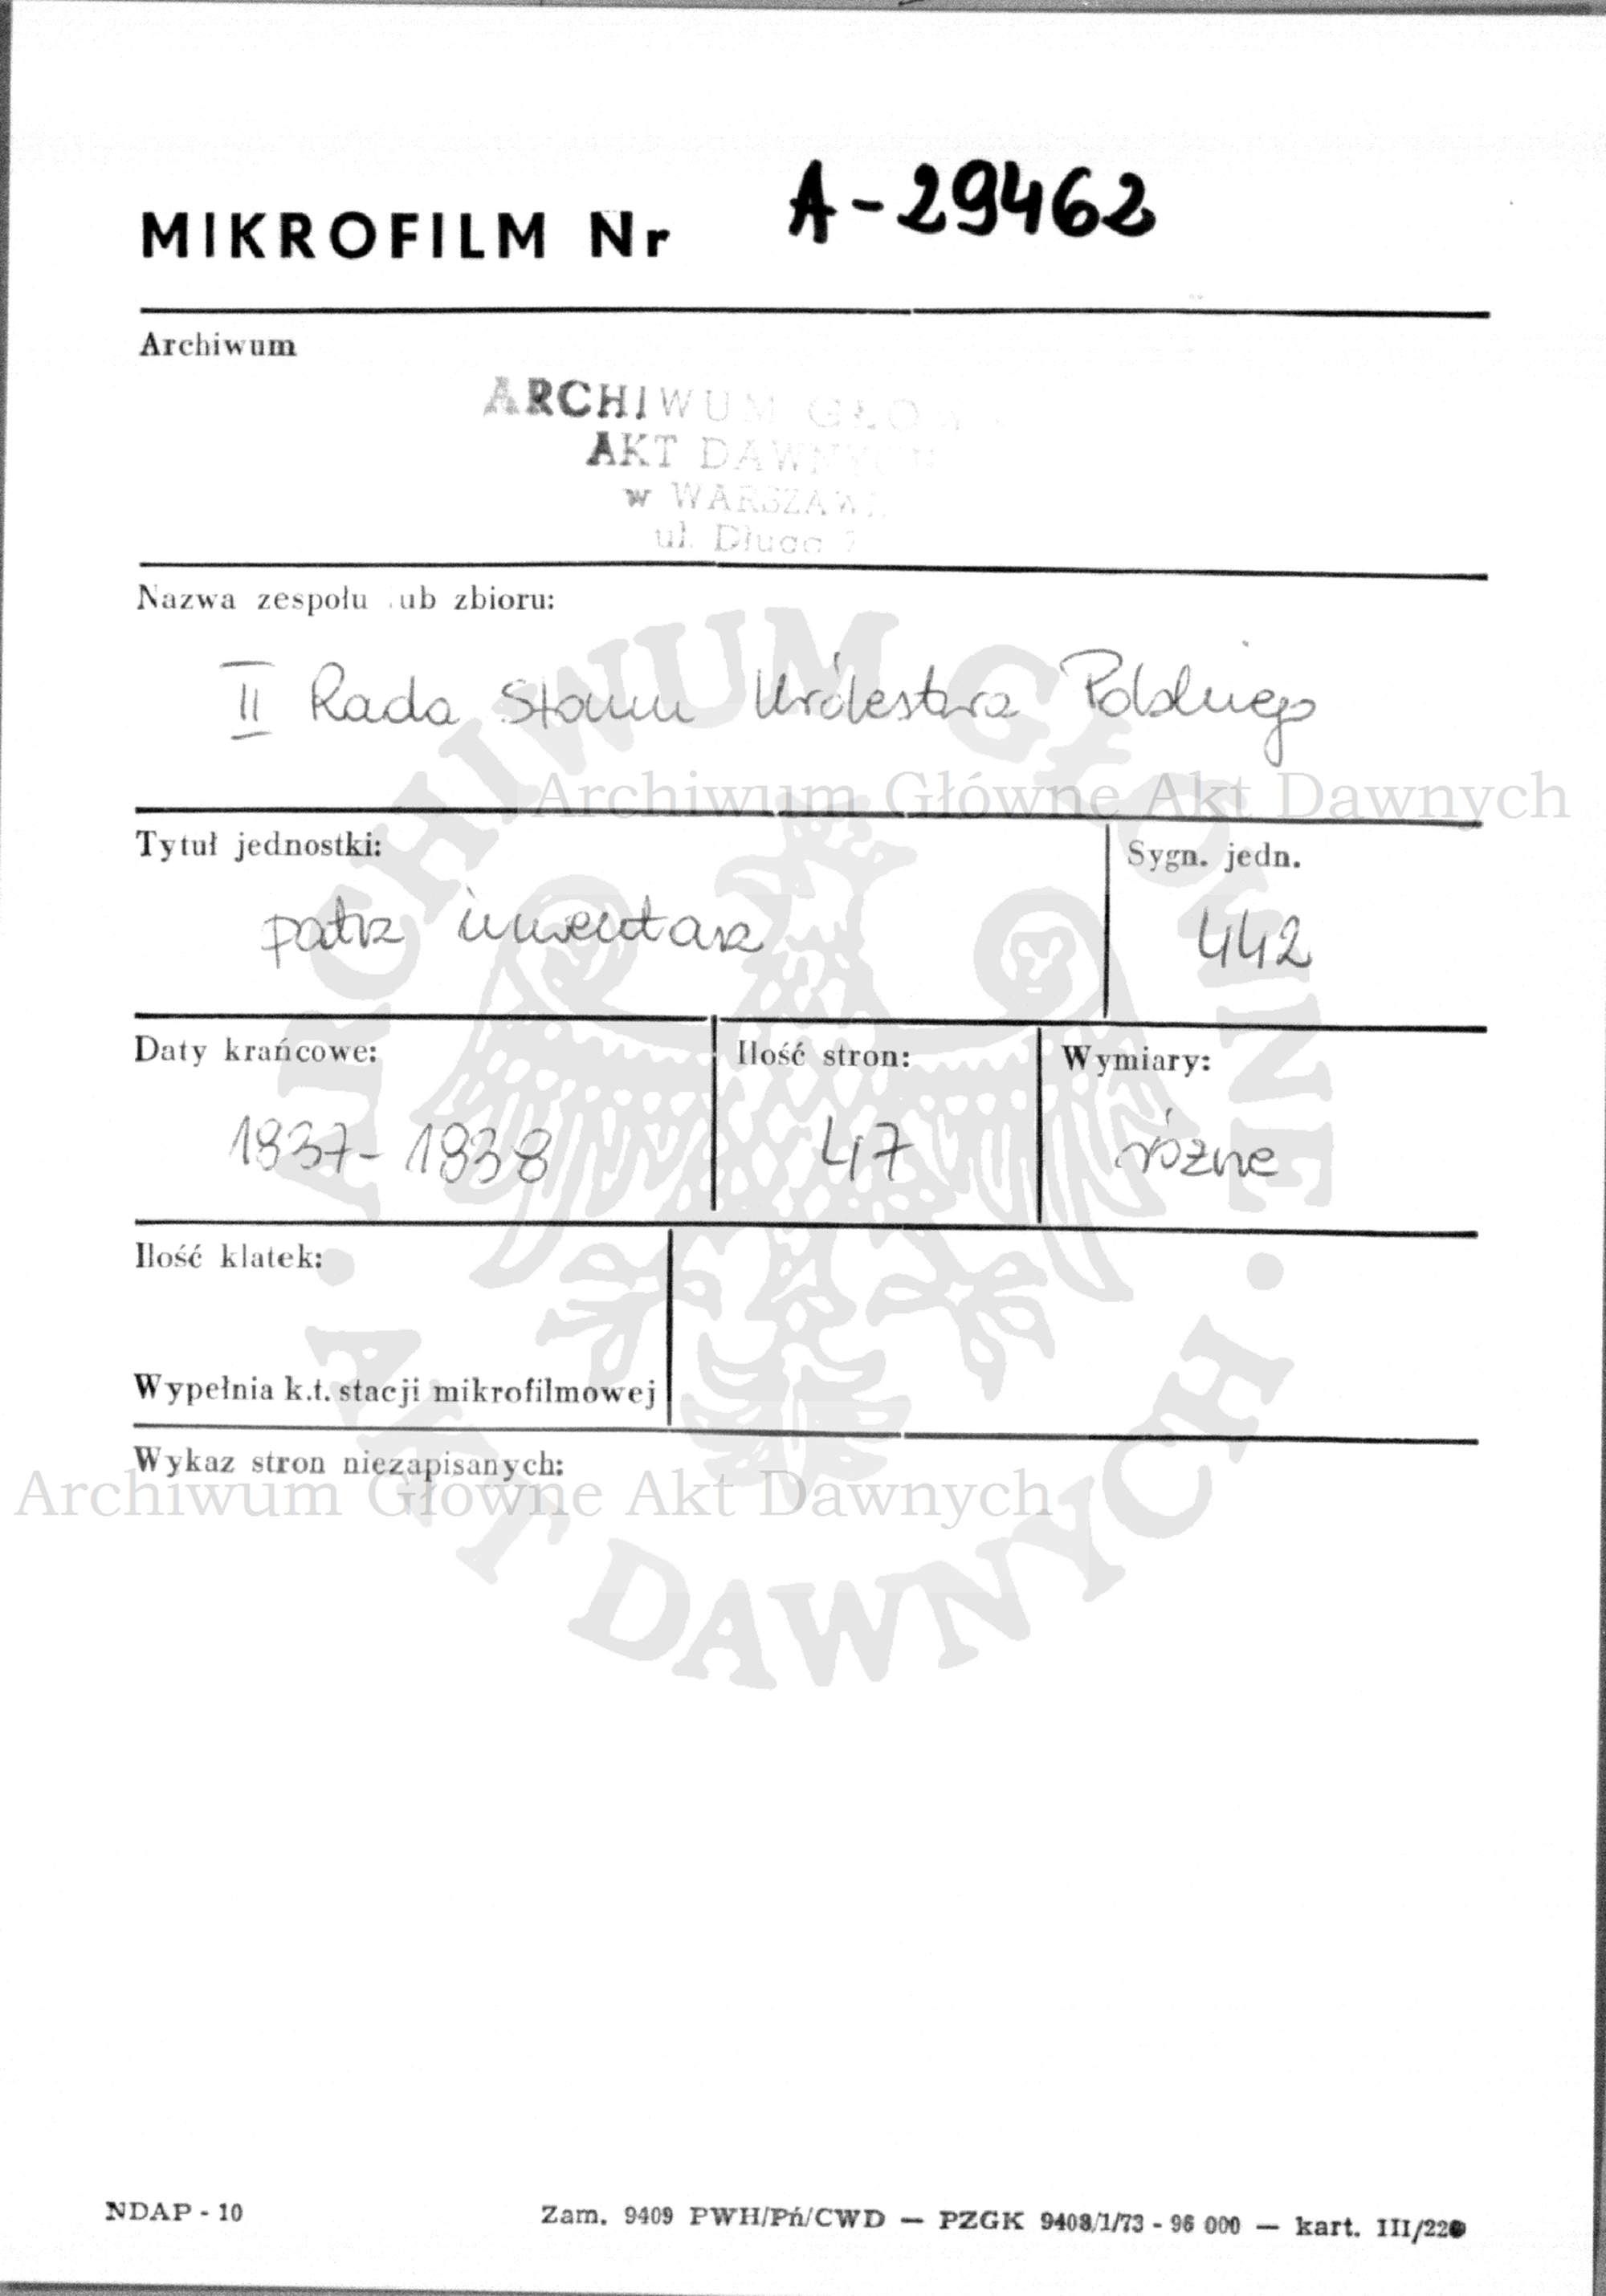 MIKROFILM Nr A-29462
Archiwum
ARCHIWUM GŁÓW
AKT DAWNYCH
w WARSZAWI
ul. Długa 7
Nazwa zespołu lub zbioru:
II Rada Stanu Królestwa Polskiego
Archiwum Główne Akt Dawnych
Tytuł jednostki: Sygn. jedn.
patrz inwentarz 442
Daty krańcowe: Ilość stron: Wymiary:
1837-1838 47 różne
Ilość klatek:
Wypełnia k.t. stacji mikrofilmowej
Wykaz stron niezapisanych:
Archiwum Główne Akt Dawnych
ARCHIWUM GŁÓWNE · AKT DAWNYCH ·
NDAP - 10 Zam. 9409 PWH/Pń/CWD — PZGK 9408/1/73 - 96 000 — kart. III/220